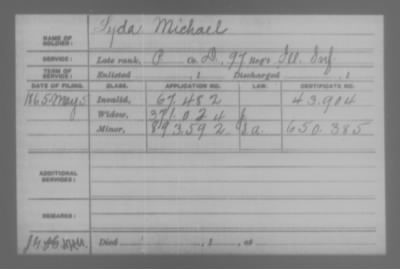 Lyda Michael
NAME OF SOLDIER:
SERVICE: Late rank, P Co. D, 97 Reg't Ill. Inf
TERM OF SERVICE: Enlisted , 1 Discharged , 1
DATE OF FILING. CLASS. APPLICATION NO. LAW. CERTIFICATE NO.
1865 May 5 Invalid, 67.482 43.904
Widow, 371.024
Minor, 893.592 650.385
ADDITIONAL SERVICES:
REMARKS:
Died , 1 , at